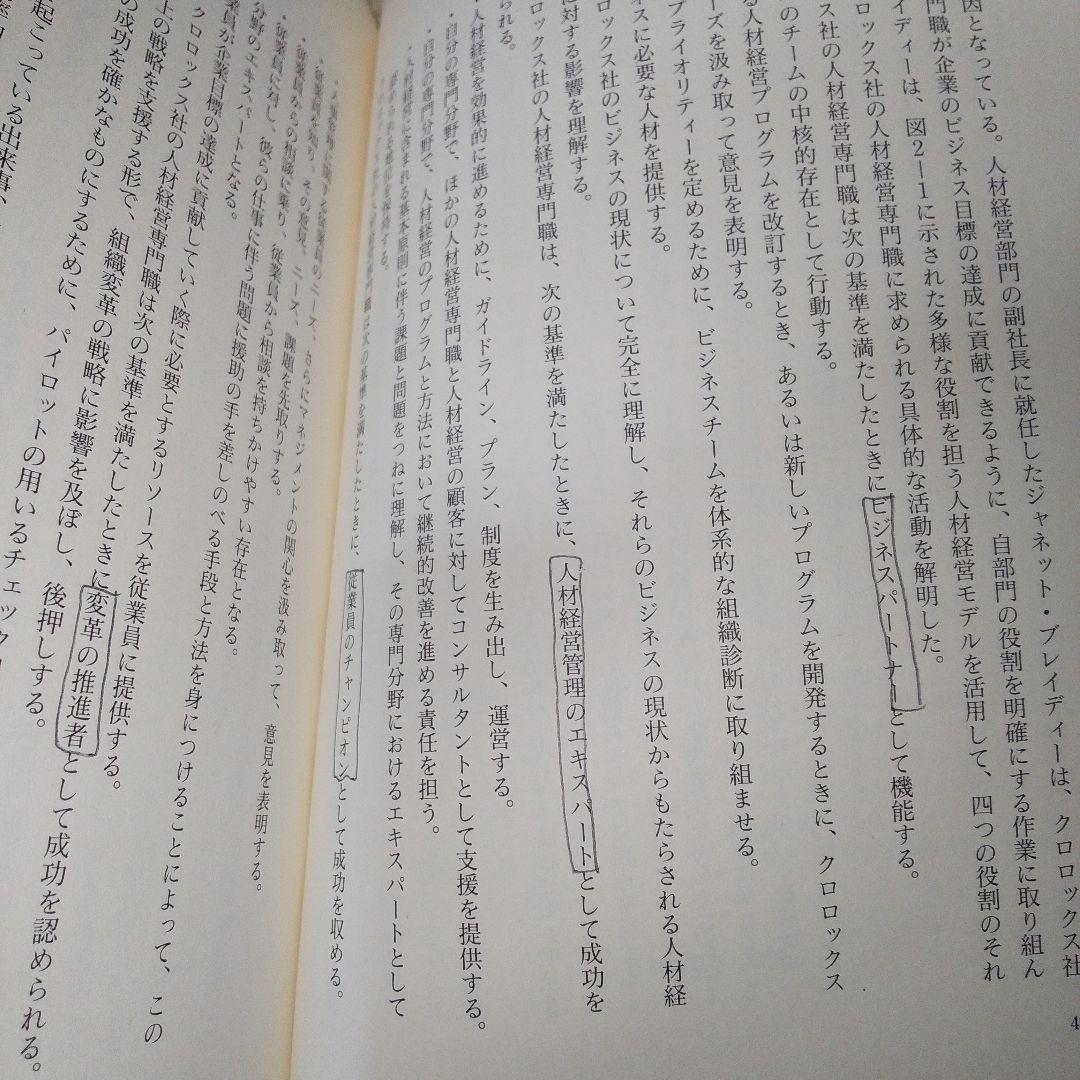 因となっている。人材経営部門の副社長に就任したジャネット・ブレイディーは、クロロックス社
門職が企業のビジネス目標の達成に貢献できるように、自部門の役割を明確にする作業に取り組ん
イディーは、図2―1に示された多様な役割を担う人材経営モデルを活用して、四つの役割のそれ
ロックス社の人材経営専門職に求められる具体的な活動を解明した。
ス社の人材経営専門職は次の基準を満たしたときにビジネスパートナーとして機能する。
のチームの中核的存在として行動する。
る人材経営プログラムを改訂するとき、あるいは新しいプログラムを開発するときに、クロロックス
ーズを汲み取って意見を表明する。
プライオリティーを定めるために、ビジネスチームを体系的な組織診断に取り組ませる。
ネスに必要な人材を提供する。
ロックス社のビジネスの現状について完全に理解し、それらのビジネスの現状からもたらされる人材経
に対する影響を理解する。
ロックス社の人材経営専門職は、次の基準を満たしたときに、人材経営管理のエキスパートとして成功を
られる。
・人材経営を効果的に進めるために、ガイドライン、プラン、制度を生み出し、運営する。
・自分の専門分野で、ほかの人材経営専門職と人材経営の顧客に対してコンサルタントとして支援を提供する。
・自分の専門分野で、人材経営のプログラムと方法において継続的改善を進める責任を担う。
・人材経営に含まれる基本原則に伴う課題と問題をつねに理解し、その専門分野におけるエキスパートとして
を維持する。
職は次の基準を満たしたときに、従業員のチャンピオンとして成功を収める。
する従業員のニーズ、さらにマネジメントの関心を汲み取って、意見を表明する。
・従業員を知り、その意見、ニーズ、課題を先取りする。
・従業員からの相談に乗り、従業員から相談を持ちかけやすい存在となる。
・従業員に対し、彼らの仕事に伴う問題に援助の手を差しのべる手段と方法を身につけることによって、この
分野のエキスパートとなる。
従業員が企業目標の達成に貢献していく際に必要とするリソースを従業員に提供する。
クロロックス社の人材経営専門職は次の基準を満たしたときに変革の推進者として成功を認められる。
上の戦略を支援する形で、組織変革の戦略に影響を及ぼし、後押しする。
の成功を確かなものにするために、パイロットの用いるチェック
起こっている出来事、
4